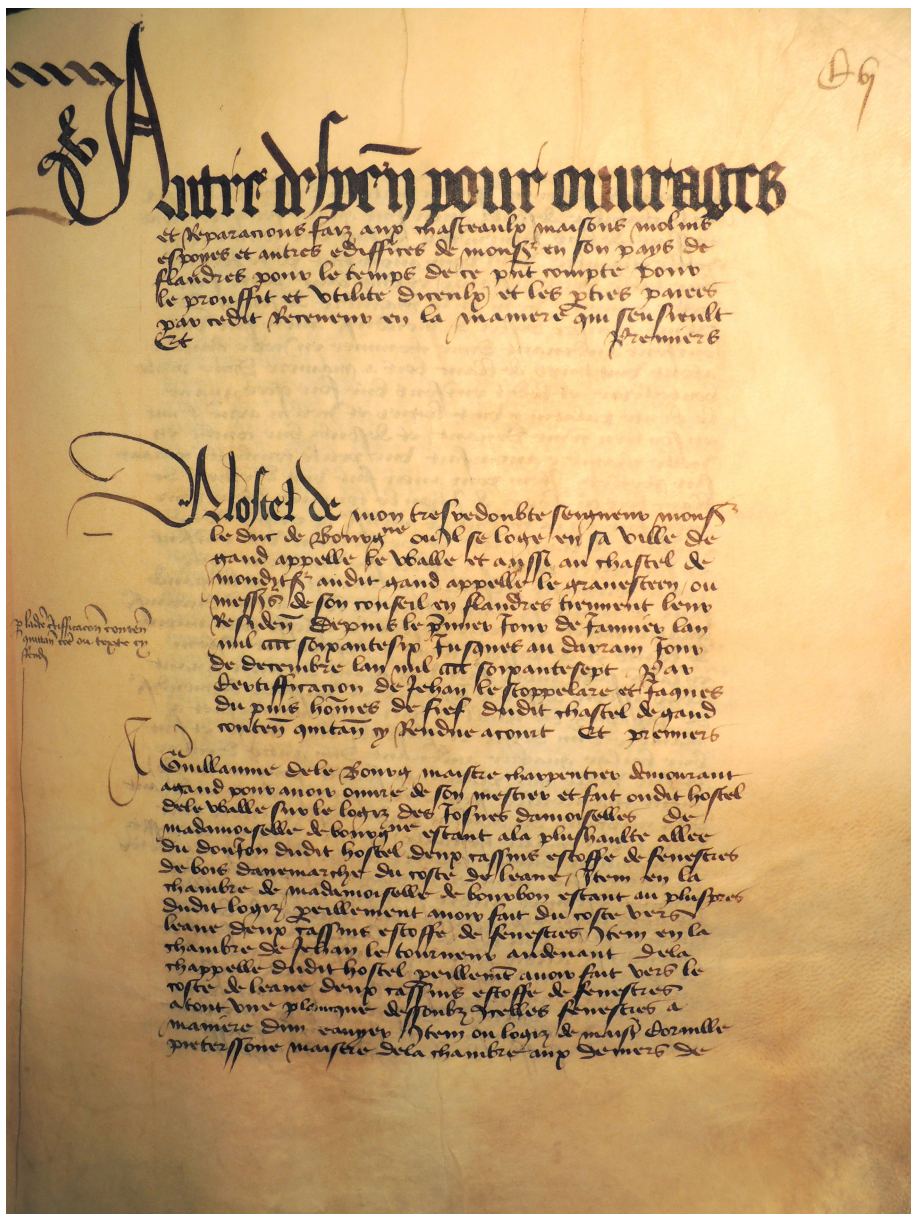 Autre despen pour ouurages
et Reparacions faiz aux chasteaulx maisons molins
et autres ediffices de monsr en son pays de
flandres pour le temps de ce pnt compte pour
le prouffit et vtilite diceulx et les pties paiees
par cedit Receueur en la maniere qui sensieult
Et Premiers
A lostel de mon tresredoubte seigneur monsr
le duc de Bourgne ou Il se loge en sa ville de
gand appelle le Walle et aussi au chastel de
mondit sr audit gand appelle le grauesteen ou
messrs de son conseil en flandres tiennent leur
Residen depuis le pmier Jour de Januier lan
mil cccc soixantesix Jusques au darrain Jour
de decembre lan mil cccc soixantesept Par
Certifficacion de Jehan le stoppelare et Jaques
du puis homes de fief dudit chastel de gand
conten quitan cy Rendue a court Et premiers
p ladte certifficacon conten
quitan cot ou texte cy
Rend
A Guillaume dele Bourg maistre charpentier demourant
agand pour auoir ouure de son mestier et fait oudit hostel
dele Walle sur le logiz des Josnes damoiselles de
madamoiselle de bourgne estant ala plushaulte allee
du donJon dudit hostel deux cassins estoffe de fenestres
de bois danemarche du coste de leaue Item en la
chambre de madamoiselle de bourbon estant au pluspres
dudit logiz peillement auoir fait du coste vers
leaue deux cassins estoffe de fenestres Item en la
chambre de Jehan le tourneur audeuant dela
chappelle dudit hostel peillemt auoir fait vers le
coste de leaue deux cassins estoffe de fenestres
atout vne plancque dessoubz Icelles fenestres a
maniere dun Item ou logiz de maistr Cornille
pieterssone maistre dela chambre aux deniers de